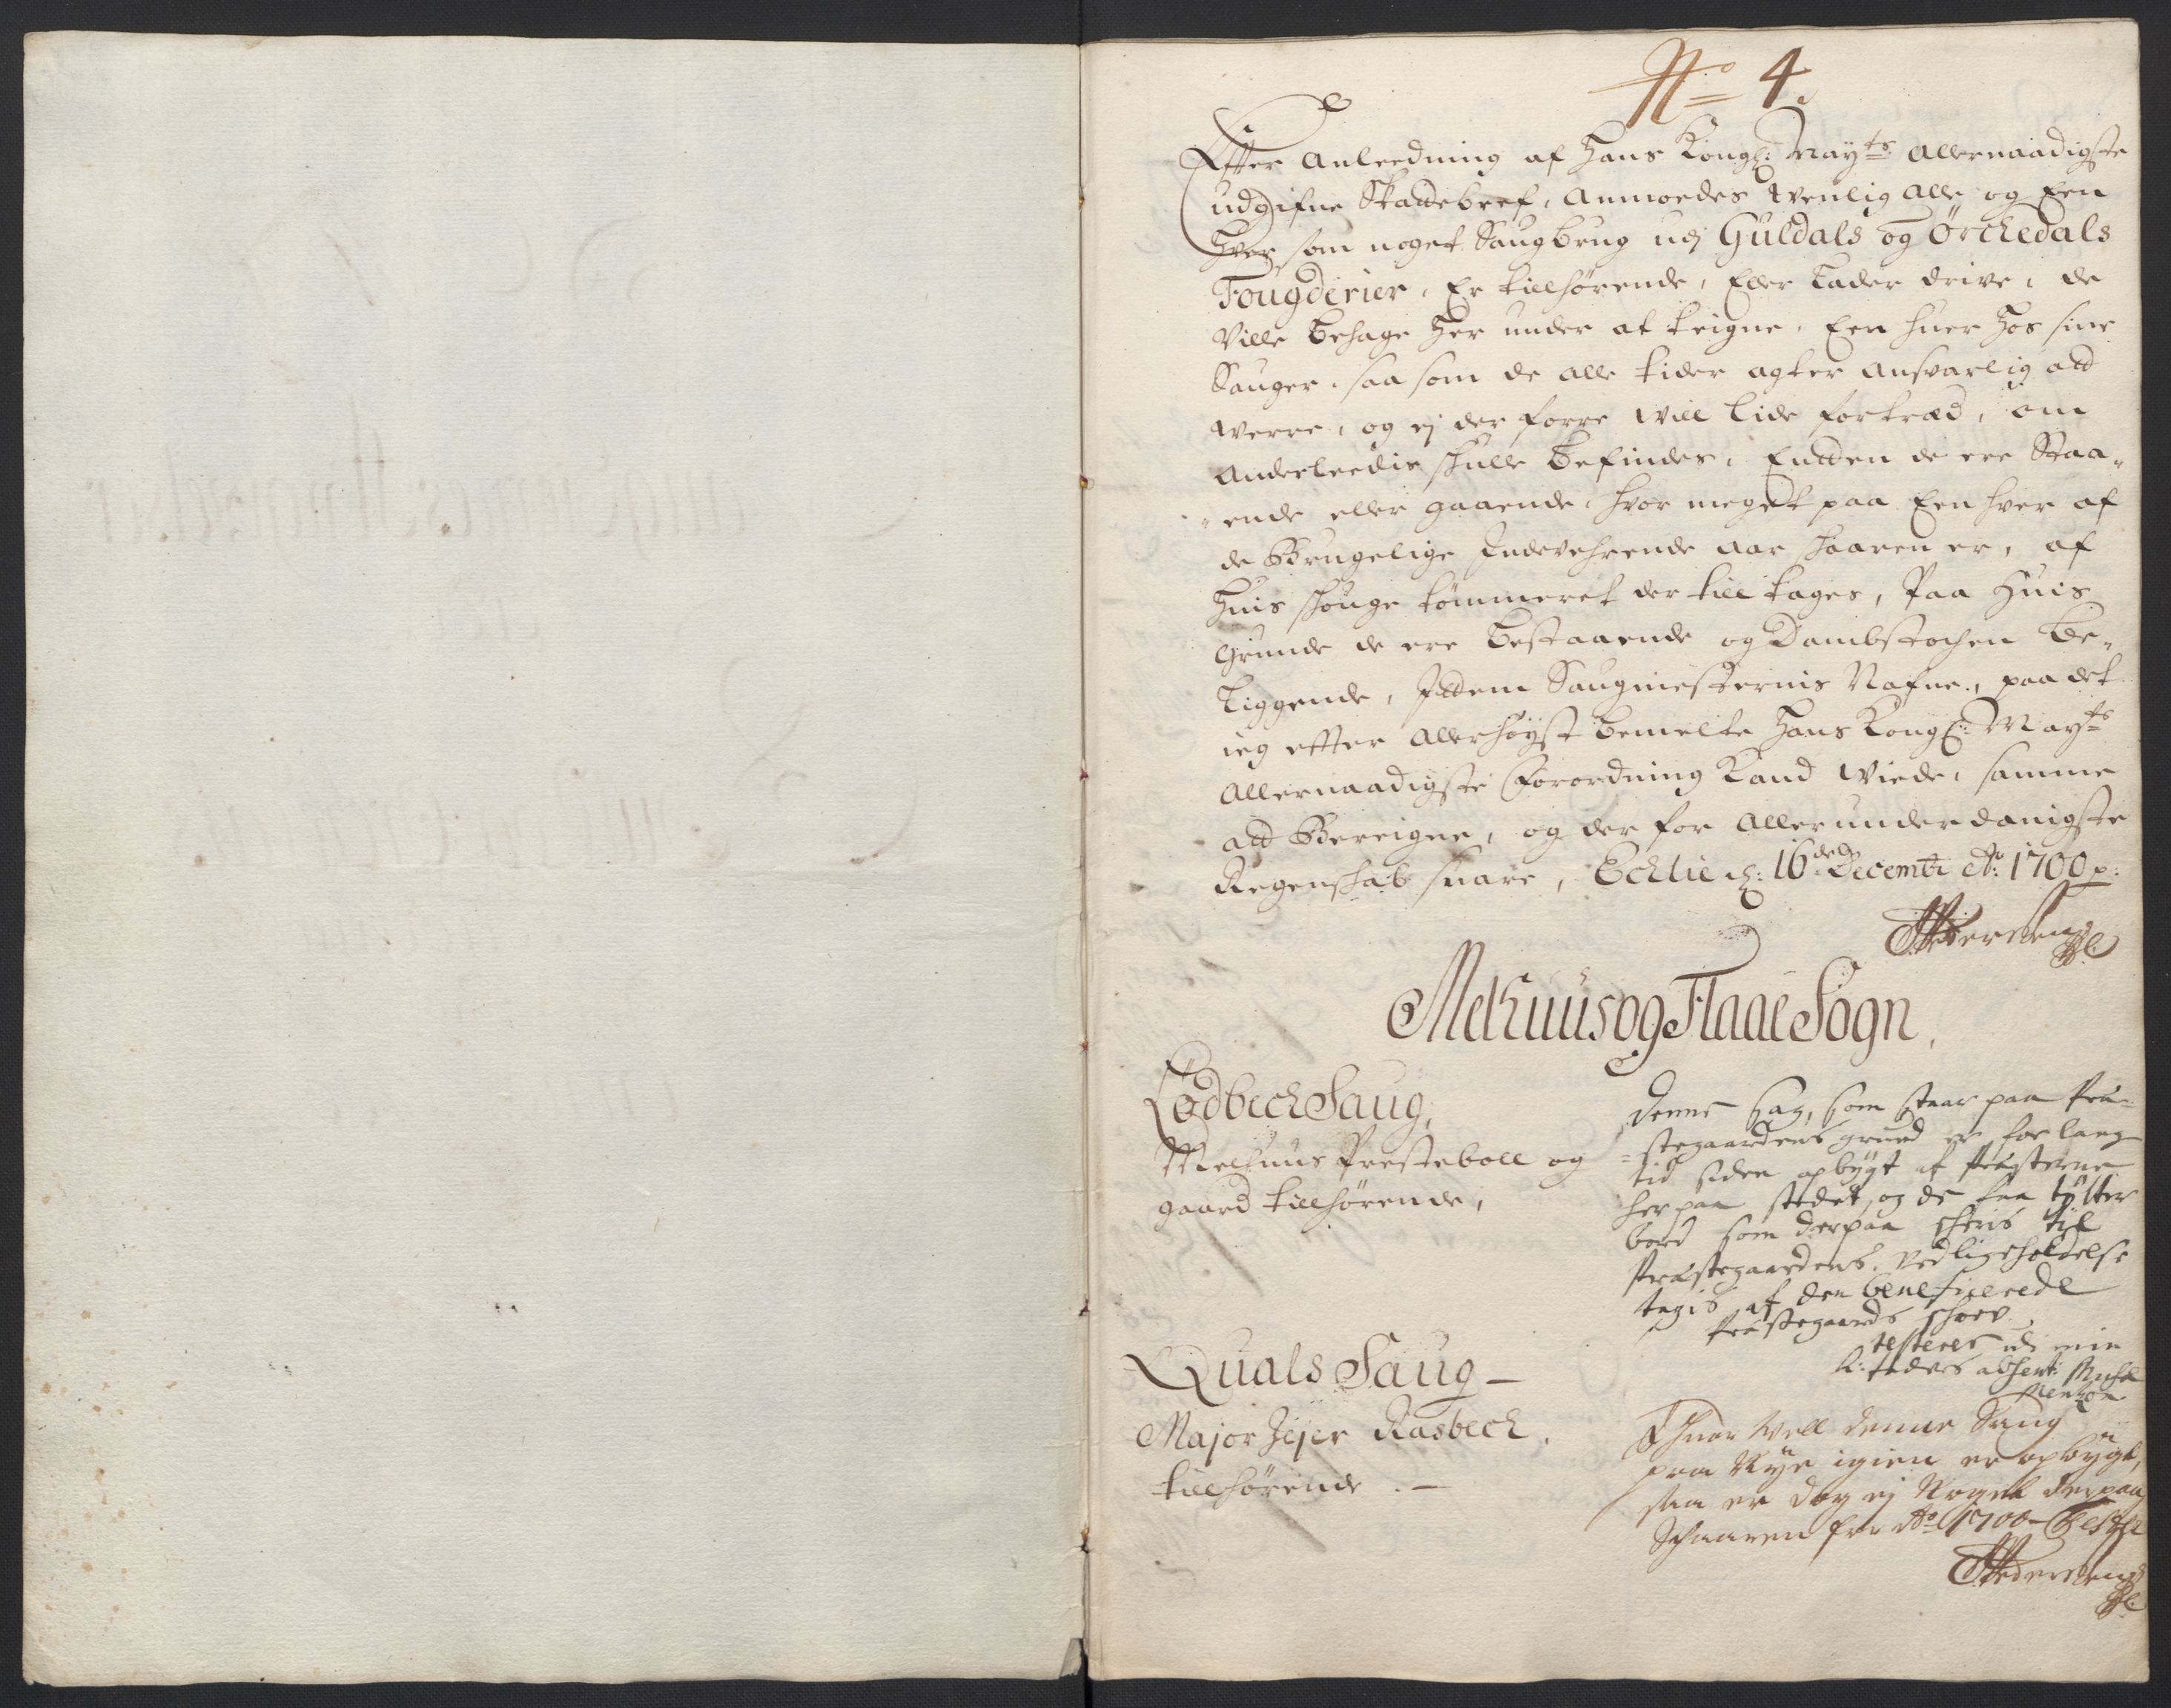 No 4.
Efter Anleedning af Hans Kongl: Mayts Allernaadigste
udgifne Skattebref, Anmoedes Wenlig Alle og Een
Hver som noget Saugbrug udj Guldals og Orchedals
Fougderier, Er tilhørende, Eller Lader drive, de
Ville Behage Her under at teigne, Een huer Hos sine
Sauger, saa som de alle tider agter ansvarlig att
Werre, og ej der forre Will Lide fortræd, om
Anderleedis skulle Befindes, Endten de ere Staa-
-ende eller gaaende, hvor meget paa Een hver af
de Brugelige Indeverende Aar Skaaren er, af
Huis skouge tømmeret der till tages, Paa Huis
Grunde de ere Bestaaende og Dambstochen be-
liggende, Jttem Saugmesternis Nafne, paa det
ieg efter Allerhøyst bemelte Hans Kongl: Mayts
Allernaadigste Forordning Kand Wiede, samme
att Bereigne, og der for Allerunderdanigste
Regenskab suare, Echlie d: 16den Decembr Ao: 1700 p:
Pedersen
Melhuus og Flaae Sogn,
Lødbech Saug,
Melhuus Presteboll og
gaard tillhørende,
Denne Sag, som staar paa Præ-
-stegaardens grund er for lang
tid siden opbygt af Præsterne
her paa stedet, og de faa tylter
bord som derpaa skæris til
Præstegaardens vedligeholdelse
tagis af den beneficerede
Præstegaards skoev
testerer udi min
K: faders absentz
Quals Saug –
Major Jejer Rasbech
tillhørende. –
Ihvor vell denne Saug
paa Nye igien er opbygt,
saa er dog ej Noget derpaa
Schaaren for Ao 1700 –
Pedersen